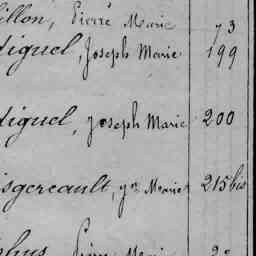 illon, Pierre Marie 73
diguel, Joseph Marie 199
diguel, Joseph Marie 200
isgereault, Jn Marie 215 bis